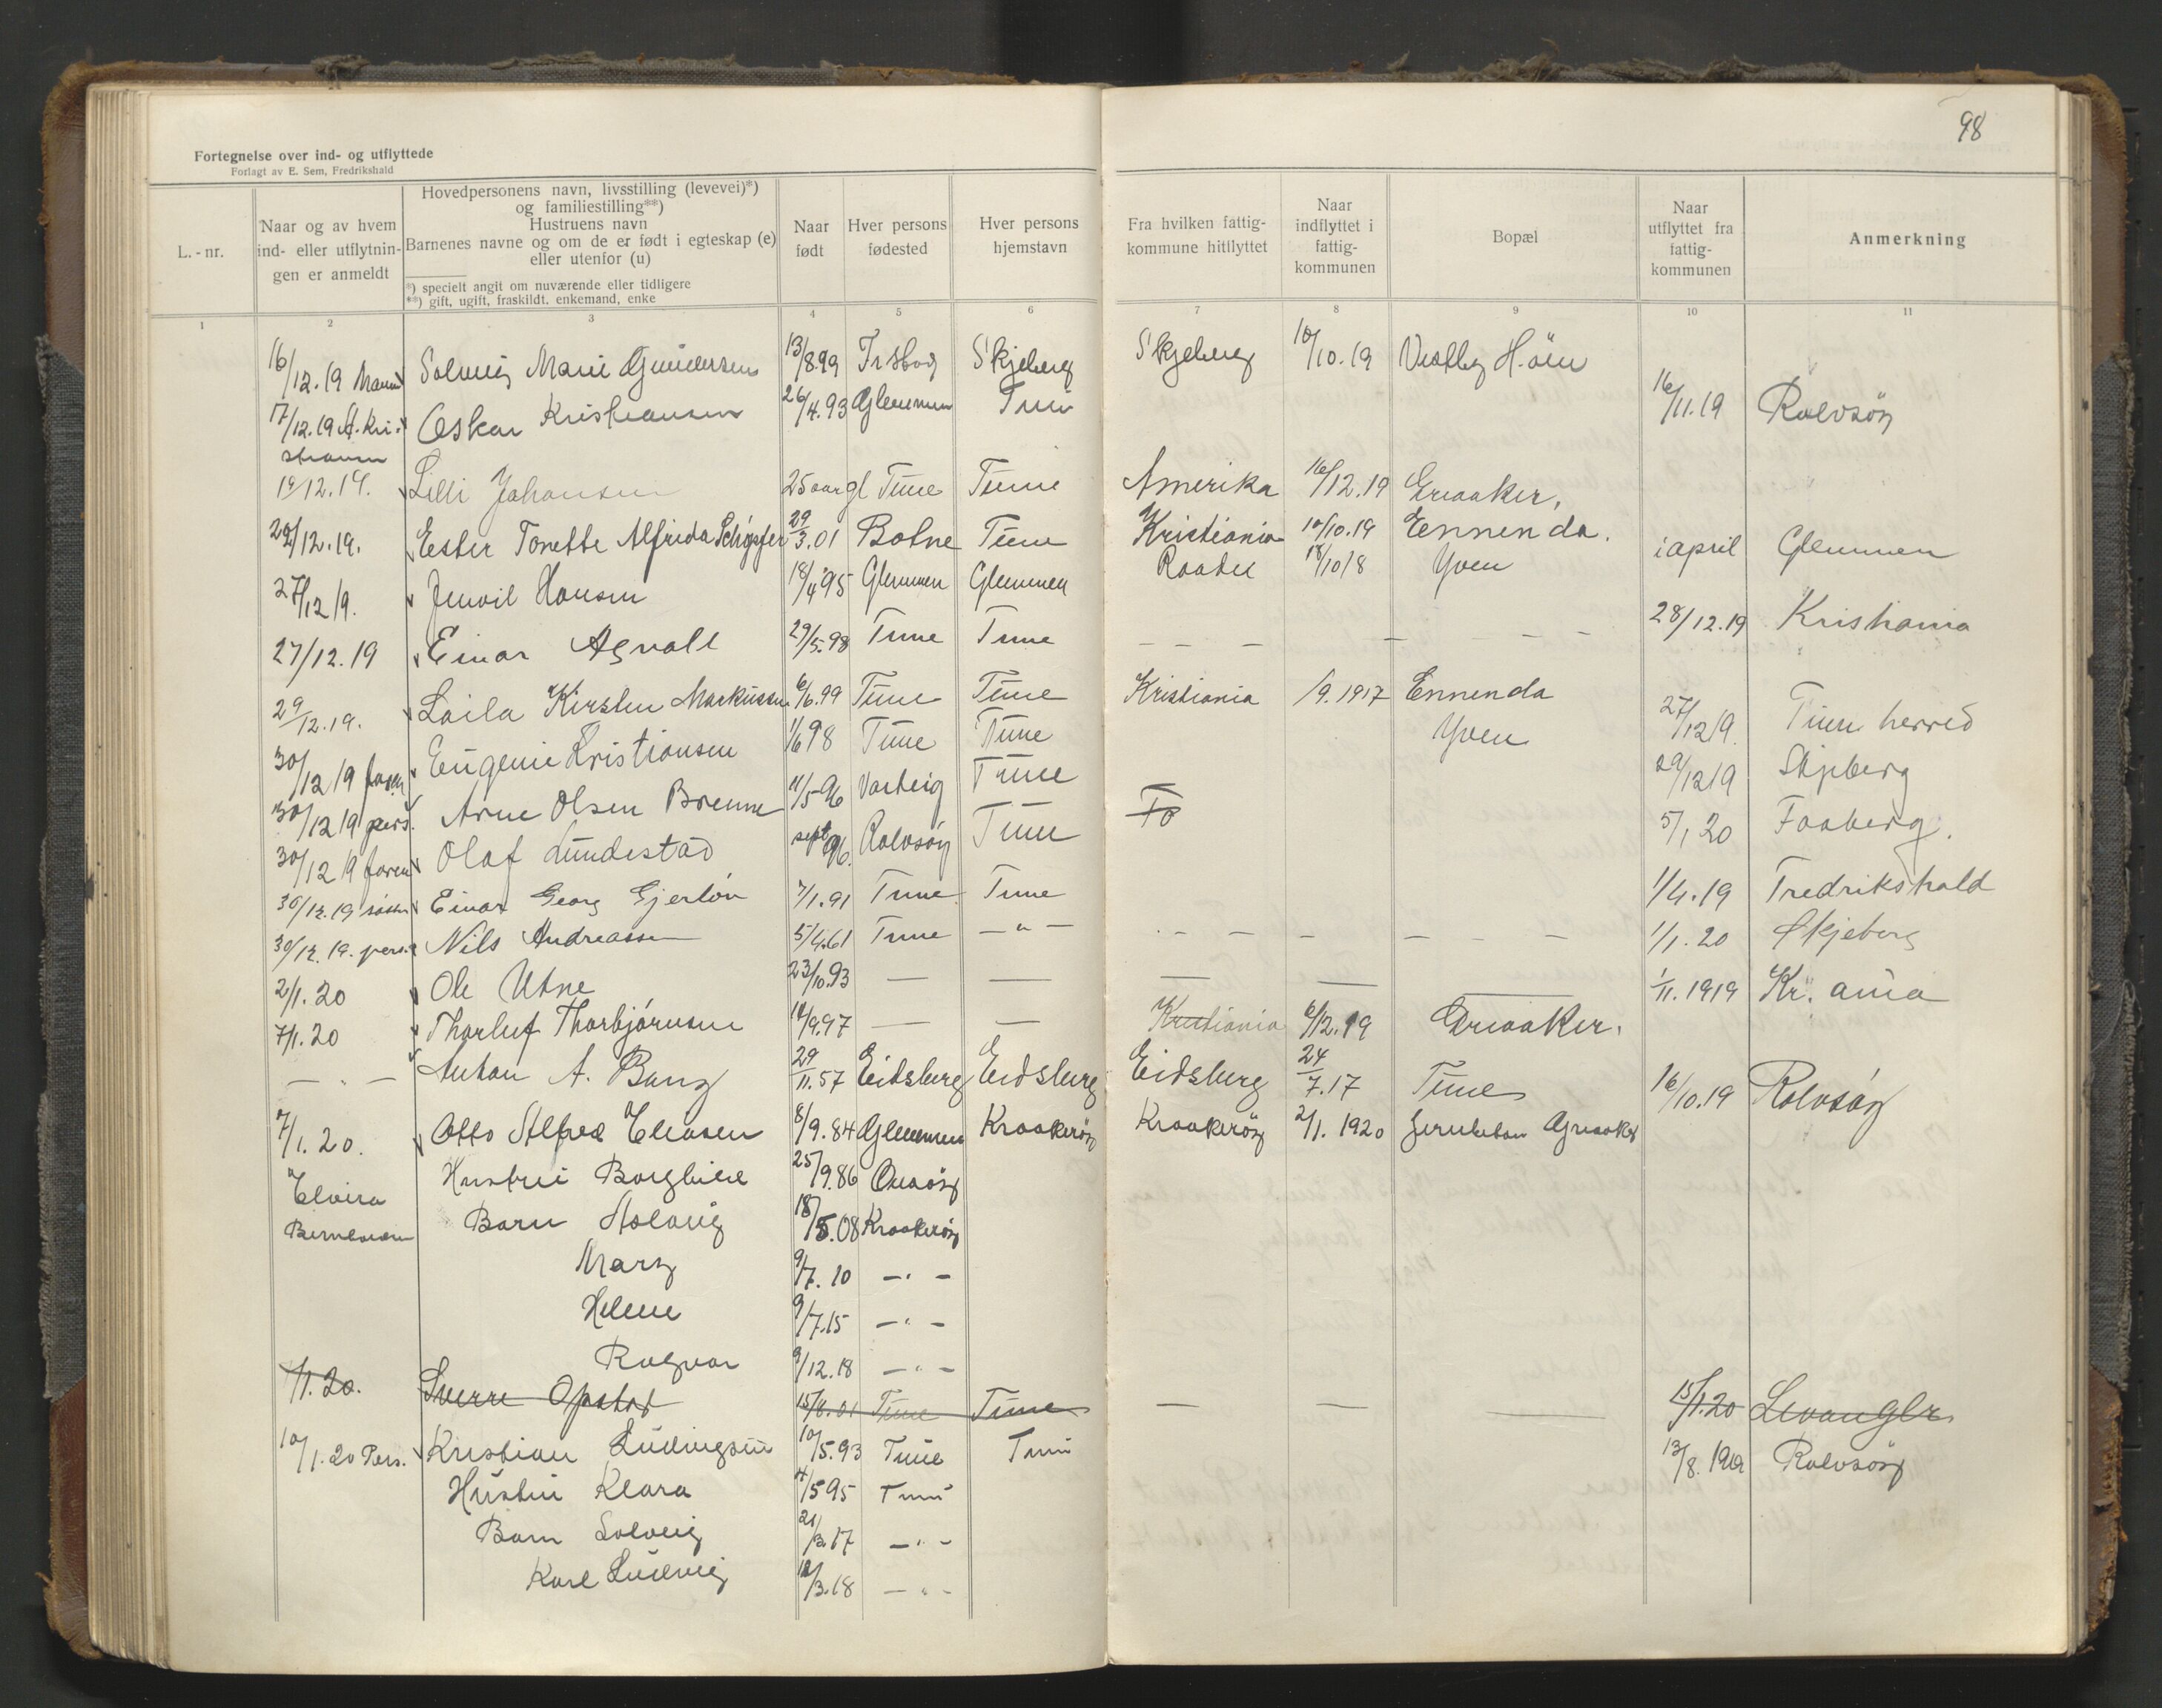 98
Fortegnelse over ind- og utflyttede
Forlagt av E. Sem, Fredrikshald
L.-nr.
Naar og av hvem ind- eller utflytningen er anmeldt
Hovedpersonens navn, livsstilling (levevei)*)
og familiestilling**)
Hustruens navn
Barnenes navne og om de er født i egteskap (e)
eller utenfor (u)
*) specielt angit om nuværende eller tidligere
**) gift, ugift, fraskildt, enkemand, enke
Naar født
Hver persons fødested
Hver persons hjemstavn
Fra hvilken fattigkommune hitflyttet
Naar indflyttet i fattigkommunen
Bopæl
Naar utflyttet fra fattigkommunen
Anmerkning
1 2 3 4 5 6 7 8 9 10 11
16/12.19 Solveig Marie Gundersen 13/8.99 Skjeberg Skjeberg 10/10.19
17/12.19 A. Kristiansen Oskar Kristiansen 26/4.93 Glemmen Tune 16/11.19 Rolvsöy
19/12.19. Lilli Johansen 25 aar gl Tune Tune Amerika 16/12.19 Greaaker.
29/12.19. Ester Tonette Alfrida Schöpfer 29/3.01 Botne Tune Kristiania 10/10.19 Ennenda.
27/12 19. Hansen 18/4 95 Glemmen Glemmen Raade 18/10 18 Yven i april Glemmen
27/12.19 Einar Agvall 29/5.98 Tune Tune — — — — — — — 28/12.19 Kristiania
29/12.19. Laila Kirsten Markussen 6/6.99 Tune Tune Kristiania /9.1917 Ennenda
30/12 19 faren Eugenie Kristiansen 1/6 98 Tune Tune Yven 27/12 19. Tune herred
30/12 19 pers. Arne Olsen Brenne 11/5 96 Varteig Tune 29/12 19 Skjeberg
30/12 19 faren Olaf Lundestad sept 96. Rolvsöy Tune 5/1 20 Faaberg.
30/12.19 Einar Georg Gjerlöv 7/1.91 Tune Tune 1/4.19 Fredrikshald
30/12.19. pers. Nils Andreassen 5/4.61 Tune — " — 1/1.20 Skjeberg
2/1.20 Ole Utne 23/10.93 — — — — — 1/11.1919 Kr.ania
7/1.20 Thorleif Thorbjörnsen 14/9.97 — — Kristiania 6/12.19 Greaaker.
— " — Anton A. Berg 29/11.57 Eidsberg Eidsberg Eidsberg 24/7.17 Tune 16/10.19 Rolvsöy
7/1.20. Otto Alfred Eliasen 8/9.84 Glemmen Kraakeröy Kraakeröy 2/1.1920 Greaaker
Elvira Hustru Borghild 25/9.86 Onsöy
Barn Solveig 18/5.08 Kraakeröy
Mary 9/7.10 — " —
Helene 9/7.15 — " —
Ragvar 9/12.18 — " —
/1.20. Sverre Opstad 15/6.01 Tune Tune — — — 15/1.20 Levanger
10/1.20 Pers. Kristian Ludvigsen 10/5.93 Tune Tune 13/8.1919 Rolvsöy
Hustru Klara 4/5 95 Tune
Barn Solveig 21/3.17 — " —
Karl Ludvig 12/3.18 — " —